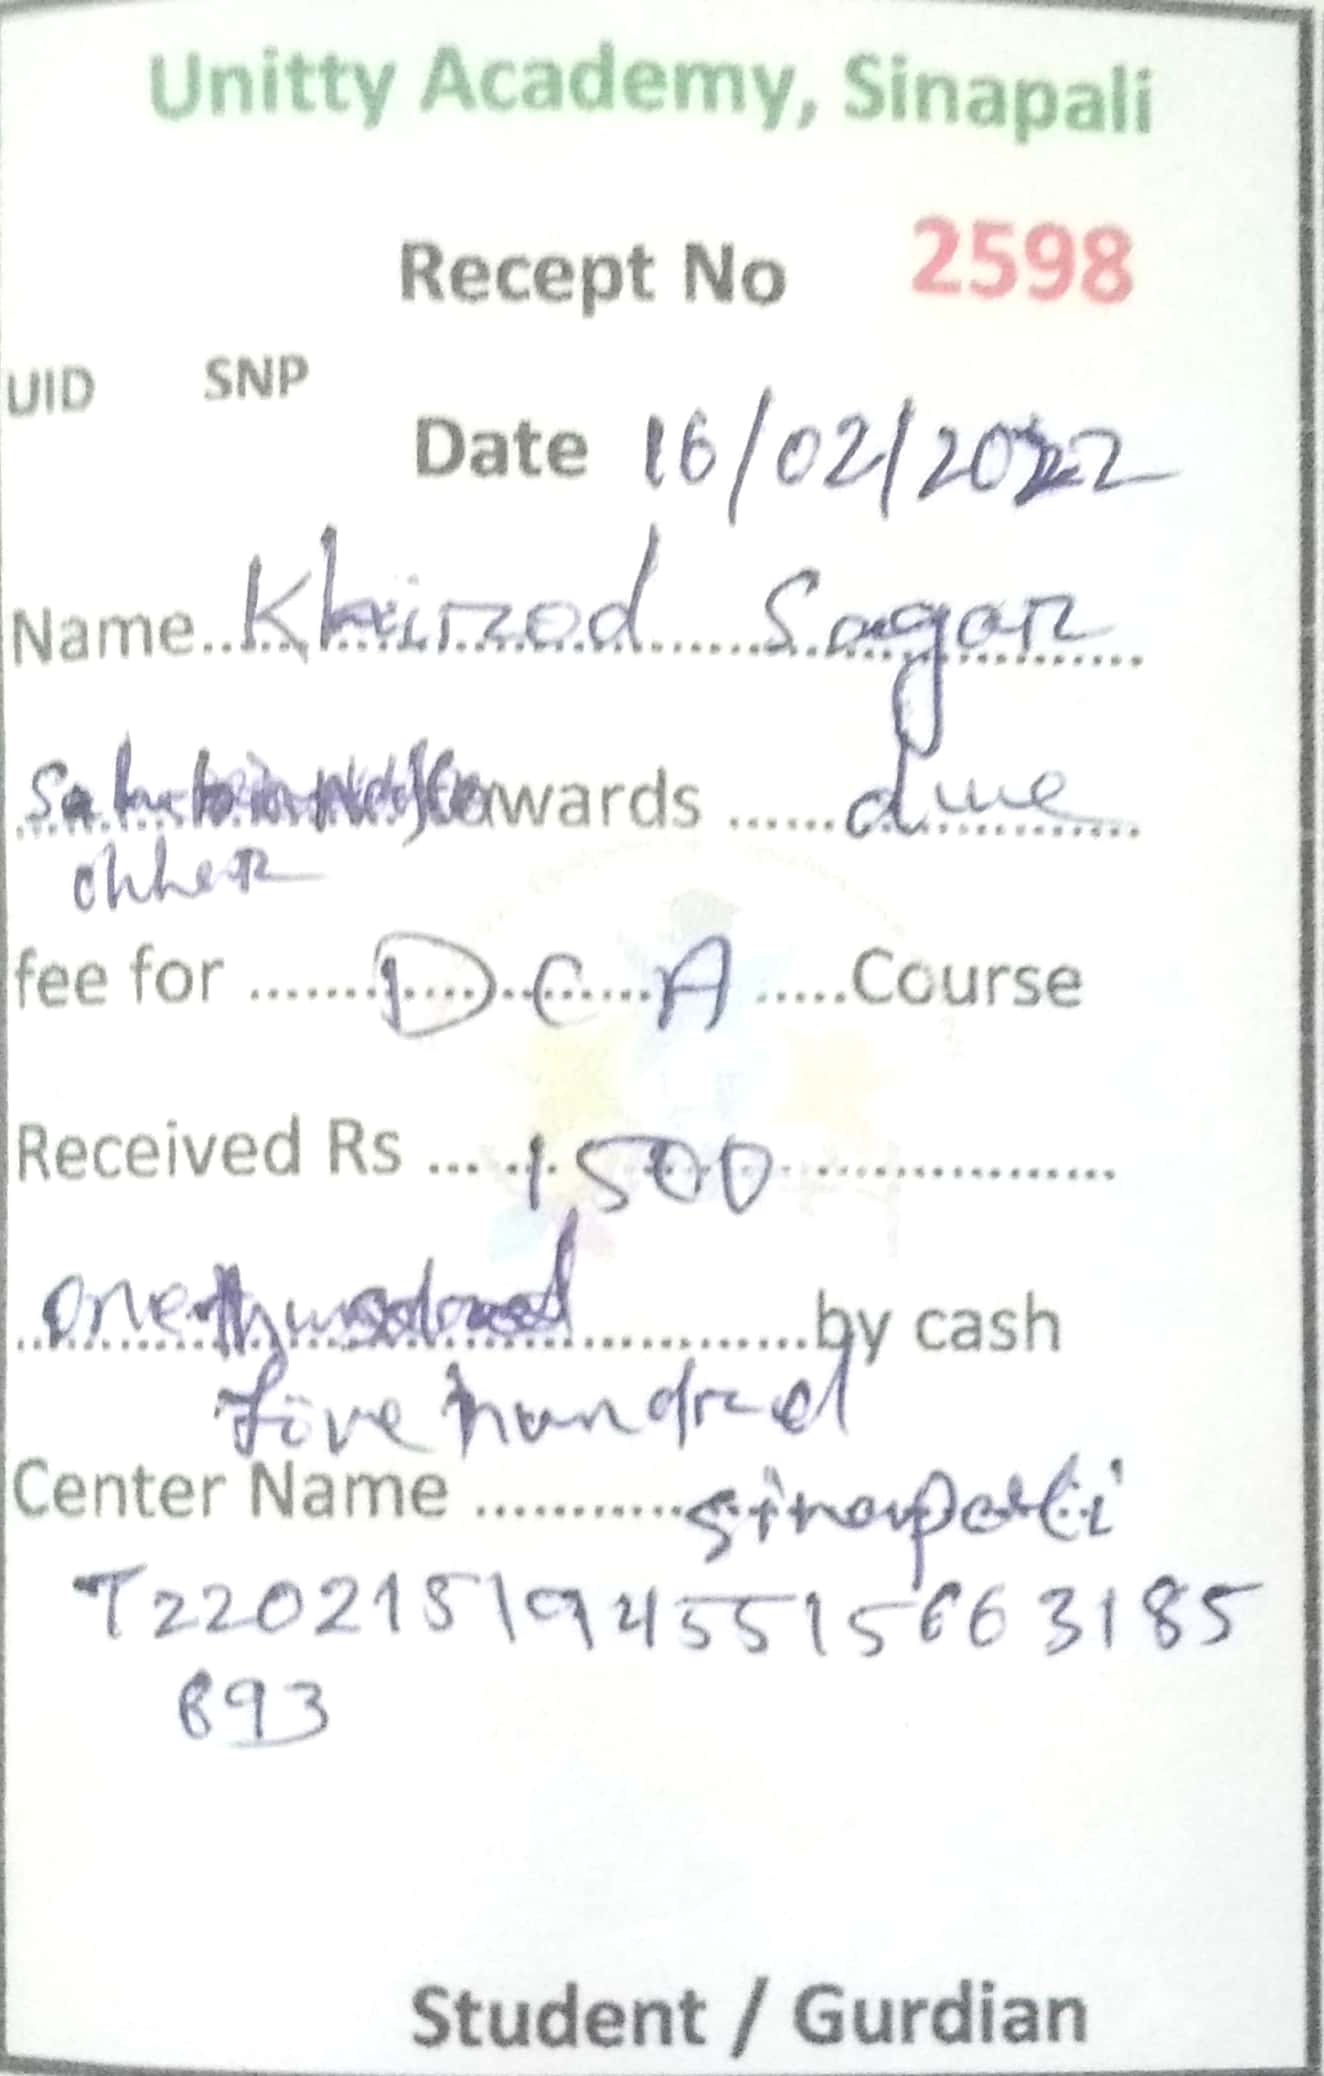 Unitty Academy, Sinapali
Recept No 2598
UID SNP
Date 16/02/2022
Name..Khirod Sagar
towards ......due
chher
fee for .......D.C.A.....Course
Received Rs ....1,500................
One thusand............by cash
five hundred
Center Name ............sinapali
T2202151945515663185
893
Student / Gurdian